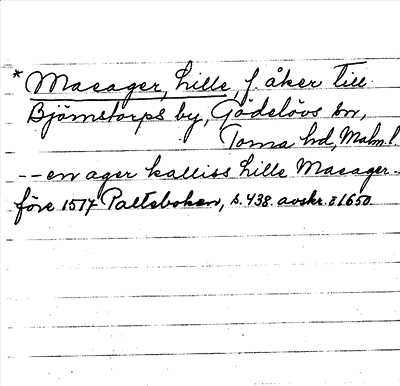 * Maeager, Lille, f. åker till
Björnstorps by, Gödelövs sn,
Torna hd, Malm.l.
-- en ager kalliss Lille Maeager --
före 1517 Palteboken, s. 438. avskr. å 1650